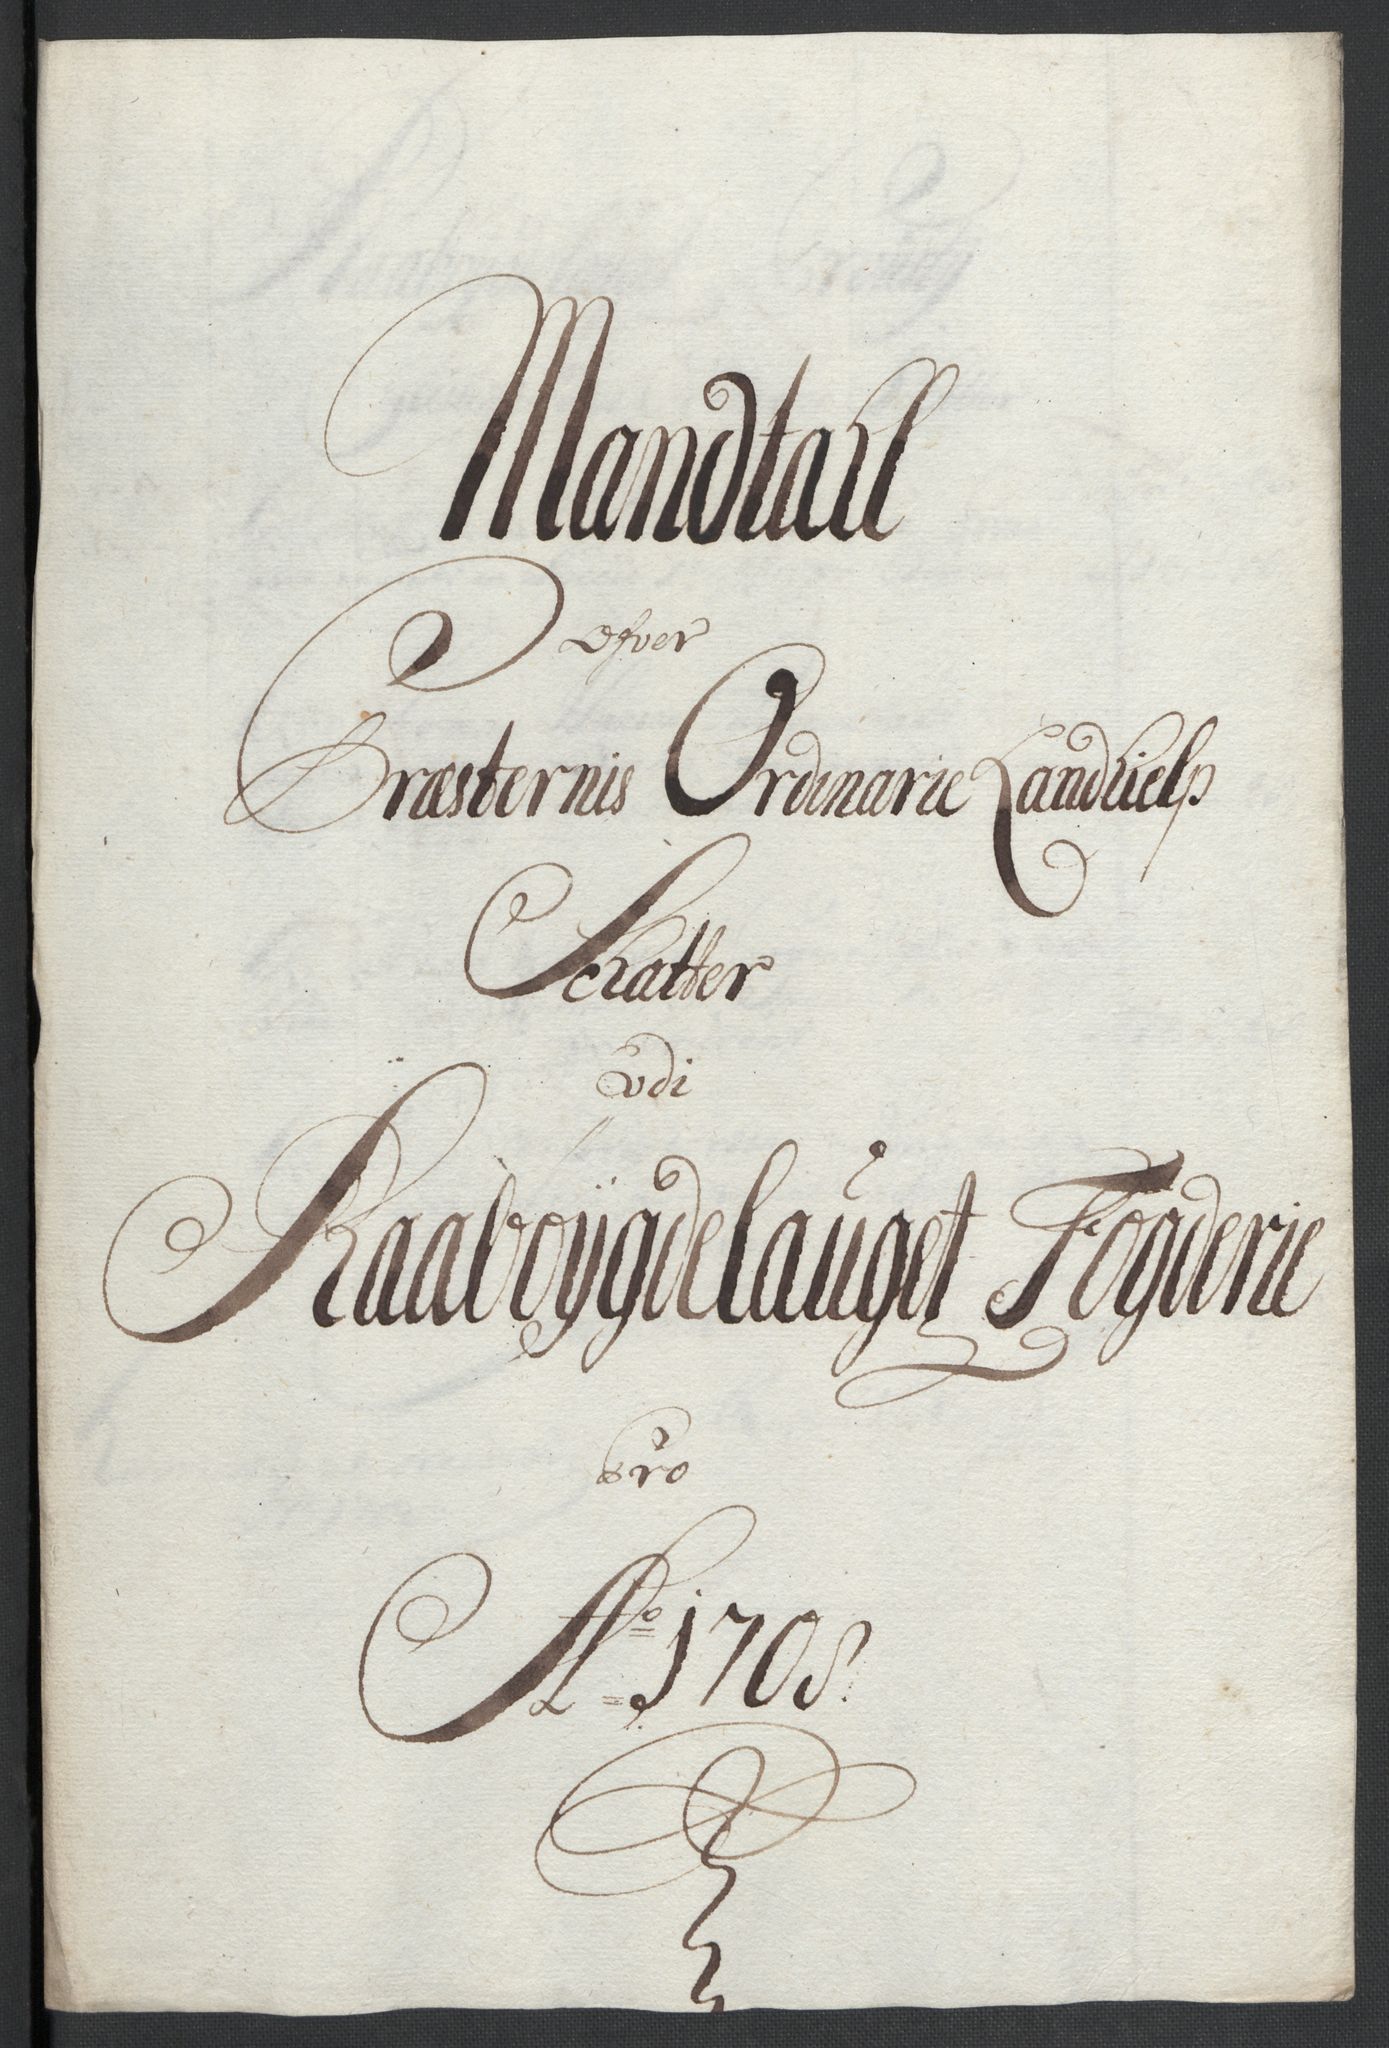 Mandtall
Ofver
Præsternis Ordinarie Landhielp
Schatter
vdi
Raaboÿgdelauget Fogderie
pro
Ao 1708.